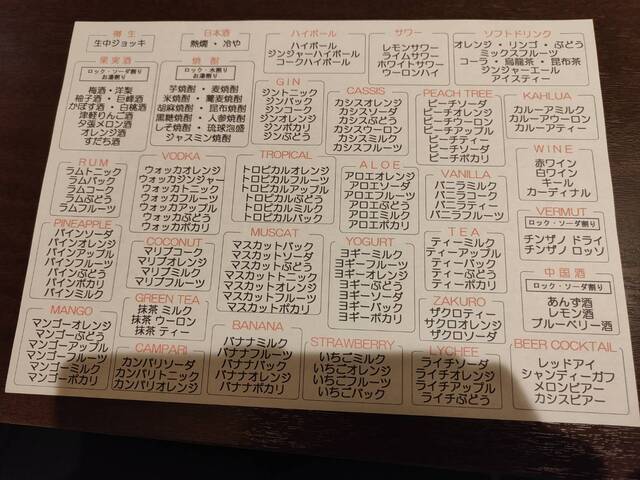 樽生
生中ジョッキ
日本酒
熱燗・冷や
ハイボール
ハイボール
ジンジャーハイボール
コークハイボール
サワー
レモンサワー
ライムサワー
ホワイトサワー
ウーロンハイ
ソフトドリンク
オレンジ・リンゴ・ぶどう
ミックスフルーツ
コーラ・烏龍茶・昆布茶
ジンジャーエール
アイスティー
果実酒
ロック・ソーダ割り
お湯割り
梅酒・洋梨
柚子酒・巨峰酒
かぼす酒・白桃酒
津軽りんご酒
夕張メロン酒
オレンジ酒
すだち酒
焼酎
ロック・水割り
お湯割り
芋焼酎・麦焼酎
米焼酎・蕎麦焼酎
胡麻焼酎・昆布焼酎
黒糖焼酎・人参焼酎
しそ焼酎・琉球泡盛
ジャスミン焼酎
GIN
ジントニック
ジンバック
ジンコーク
ジンオレンジ
ジンポカリ
ジンぶどう
CASSIS
カシスオレンジ
カシスソーダ
カシスぶどう
カシスウーロン
カシスミルク
カシスフルーツ
PEACH TREE
ピーチソーダ
ピーチオレンジ
ピーチウーロン
ピーチアップル
ピーチティー
ピーチぶどう
ピーチポカリ
KAHLUA
カルーアミルク
カルーアウーロン
カルーアティー
RUM
ラムトニック
ラムバック
ラムコーク
ラムぶどう
ラムフルーツ
VODKA
ウォッカオレンジ
ウォッカジンジャー
ウォッカトニック
ウォッカフルーツ
ウォッカアップル
ウォッカぶどう
ウォッカポカリ
TROPICAL
トロピカルオレンジ
トロピカルフルーツ
トロピカルアップル
トロピカルぶどう
トロピカルミルク
トロピカルバック
ALOE
アロエオレンジ
アロエソーダ
アロエフルーツ
アロエぶどう
アロエミルク
アロエポカリ
VANILLA
バニラミルク
バニラコーク
バニラティー
バニラフルーツ
WINE
赤ワイン
白ワイン
キール
カーディナル
VERMUT
ロック・ソーダ割り
チンザノ ドライ
チンザノ ロッソ
PINEAPPLE
パインソーダ
パインオレンジ
パインアップル
パインフルーツ
パインぶどう
パインポカリ
パインミルク
COCONUT
マリブコーク
マリブオレンジ
マリブミルク
MUSCAT
マスカットバック
マスカットソーダ
マスカットぶどう
マスカットトニック
マスカットオレンジ
マスカットフルーツ
マスカットポカリ
YOGURT
ヨギーミルク
ヨギーフルーツ
ヨギーオレンジ
ヨギーぶどう
ヨギーソーダ
ヨギーバック
ヨギーポカリ
TEA
ティーミルク
ティーオレンジ
ティーアップル
ティーバック
ティーぶどう
ティーフルーツ
中国酒
ロック・ソーダ割り
あんず酒
レモン酒
ブルーベリー酒
MANGO
マンゴーオレンジ
マンゴーぶどう
マンゴーアップル
マンゴーフルーツ
マンゴーミルク
マンゴーポカリ
GREEN TEA
抹茶 ミルク
抹茶 ウーロン
抹茶 ティー
CAMPARI
カンパリソーダ
カンパリトニック
カンパリオレンジ
BANANA
バナナミルク
バナナフルーツ
バナナバック
バナナオレンジ
バナナポカリ
STRAWBERRY
いちごミルク
いちごオレンジ
いちごフルーツ
いちごバック
ZAKURO
ザクロティー
ザクロオレンジ
ザクロソーダ
LYCHEE
ライチソーダ
ライチオレンジ
ライチアップル
ライチぶどう
BEER COCKTAIL
レッドアイ
シャンディーガフ
メロンビアー
カシスビアー